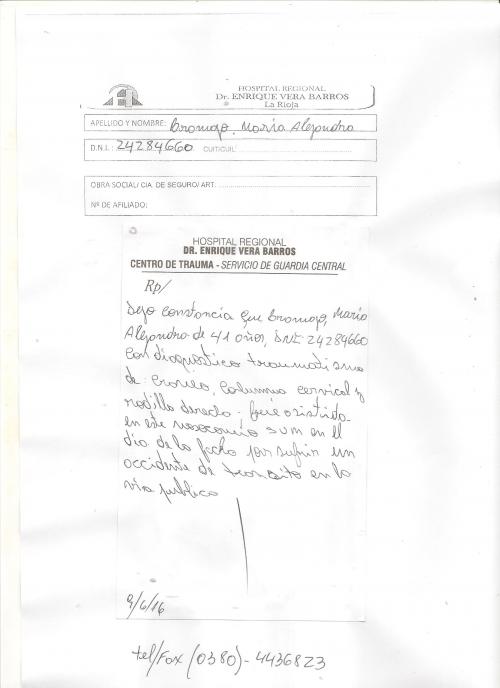 HOSPITAL REGIONAL
Dr. ENRIQUE VERA BARROS
La Rioja
APELLIDO Y NOMBRE: Bromojo, Maria Alejandra
D.N.I.: 24284660 CUIT/CUIL:
OBRA SOCIAL/ CIA. DE SEGURO/ ART.
Nº DE AFILIADO:
HOSPITAL REGIONAL
DR. ENRIQUE VERA BARROS
CENTRO DE TRAUMA - SERVICIO DE GUARDIA CENTRAL
Rp/
Dejo constancia que Maria
Alejandra de 41 años, DNI: 24284660
Con diagnóstico traumatismo
de craneo, columna cervical y
rodilla derecha. fue asistida
en este nosocomio en el
dia de la fecha por sufrir un
accidente de transito en la
via publica
9/6/16
tel/Fax (0380)-4436823